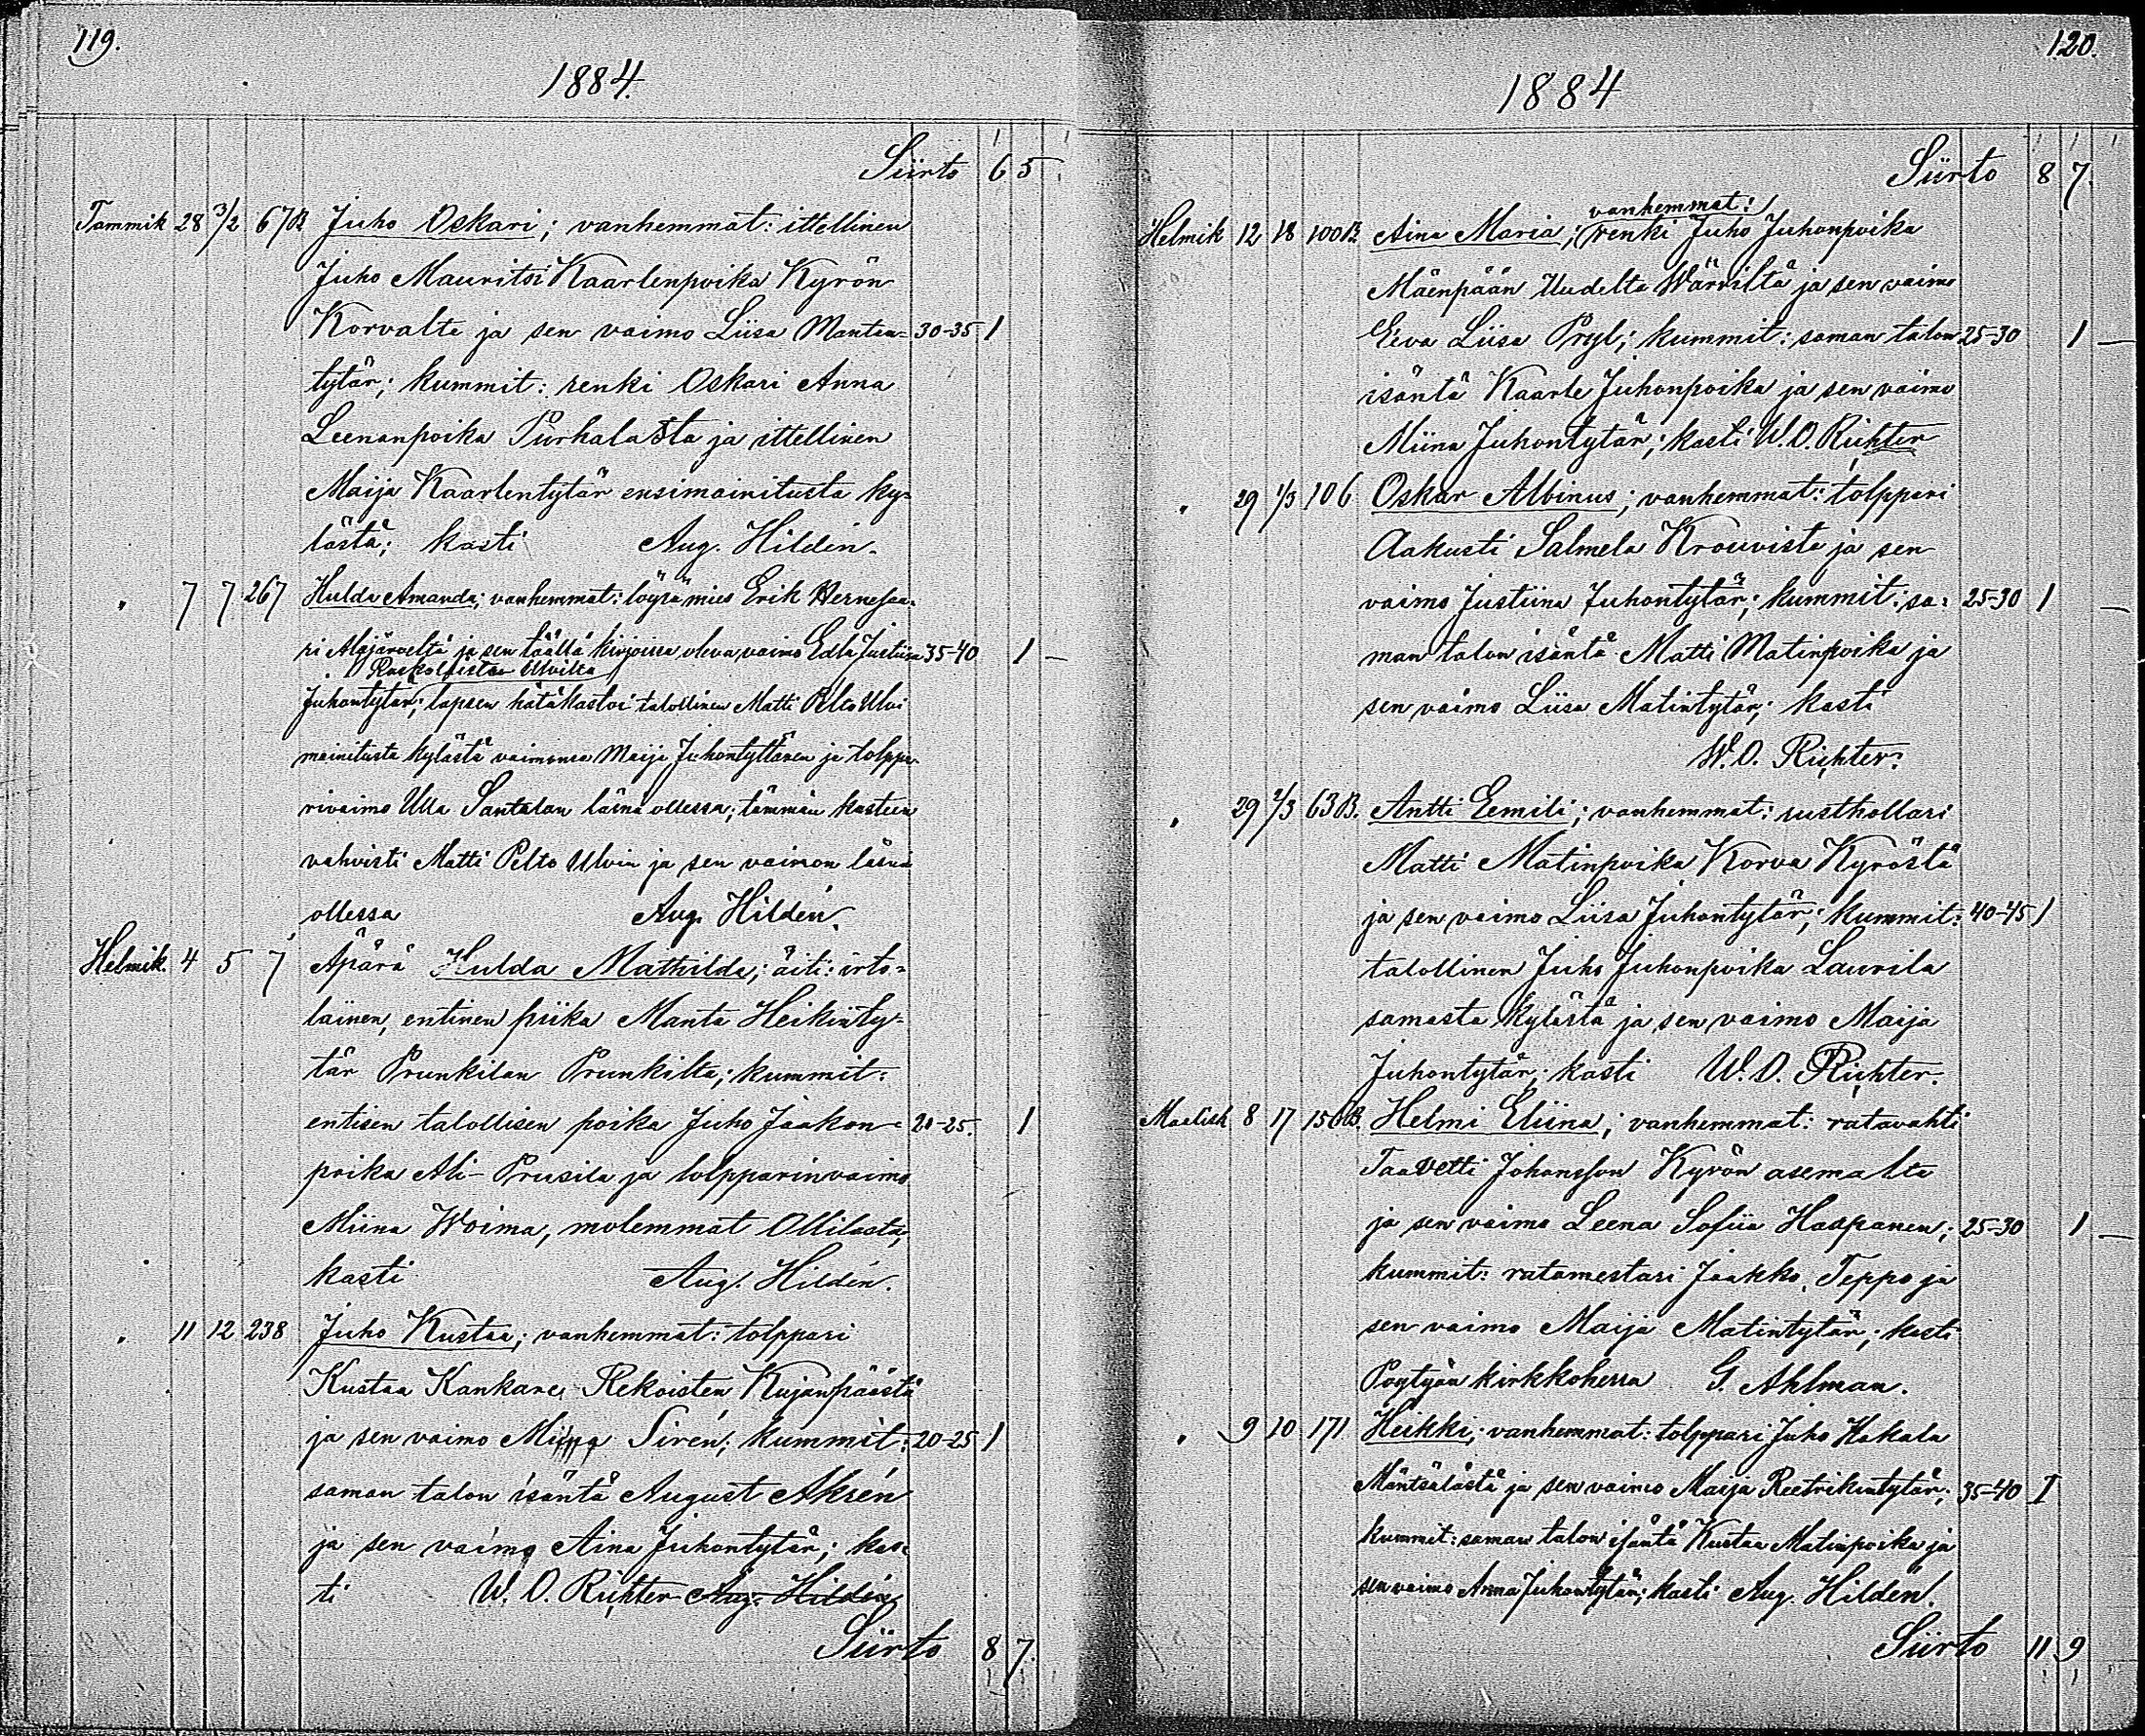 119.
1884.
Siirto 6 5
Tammik 28 3/2 67B Juho Oskari; vanhemmat: ittellinen
Juho Mauritsi Kaarlenpoika Kyrön
Korvalta ja sen vaimo Liisa Mantan- 30-35 1
tytär; kummit: renki Oskari Anna
Leenanpoika Purhalasta ja ittellinen
Maija Kaarlentytär ensimainitusta ky-
lästä; kasti Aug. Hildén.
" 7 7 267 Hulda Amanda; vanhemmat: löysä mies Erik Hernesaa-
ri Alajärveltä ja sen täällä kirjoissa oleva vaimo Edla Justiina 35-40 1 -
Ulvilta
Juhontytär; lapsen hätäkastoi talollinen Matti Pelto Ulvi
mainitusta kylästä vaimonsa Maija Juhontyttären ja tolppa-
rivaimo Ulla Santalan läsnä ollessa; tämmän kasteen
vahvisti Matti Pelto Ulvin ja sen vaimon läsnä
ollessa Aug. Hildén.
Helmik. 4 5 7 Äpärä Hulda Mathilda; äiti: irto-
läinen, entinen piika Manta Heikinty-
tär Prunkilan Prunkilta; kummit:
entisen talollisen poika Juho Jaakon- 20-25. 1
poika Ali-Prusila ja tolpparinvaimo
Miina Woima, molemmat Ollilasta;
kasti Aug. Hildén.
" 11 12 238 Juho Kustaa; vanhemmat: tolppari
Kustaa Kankare Rekoisten Kujanpäästä
ja sen vaimo Miina Sirén; kummit: 20-25 1
saman talon isäntä August Akrén
ja sen vaimo Aina Juhontytär; kas-
ti W. O. Richter Aug. Hildén
Siirto 8 7.
120.
1884
Siirto 8 7.
vanhemmat:
Helmik 12 18 100B. Aina Maria; renki Juho Juhonpoika
Mäenpään Uudelta Wärviltä ja sen vaimo
Eeva Liisa Pryl; kummit: saman talon 25-30 1 -
isäntä Kaarle Juhonpoika ja sen vaimo
Miina Juhontytär; kasti W. O. Richter
" 29 1/3 106 Oskar Albinus; vanhemmat: tolppari
Aakusti Salmela Krouvista ja sen
vaimo Justiina Juhontytär; kummit: sa- 25-30 1 -
man talon isäntä Matti Matinpoika ja
sen vaimo Liisa Matintytär; kasti
W. O. Richter.
" 29 2/3 63B. Antti Eemili; vanhemmat: rusthollari
Matti Matinpoika Korva Kyröstä
ja sen vaimo Liisa Juhontytär; kummit: 40-45 1
talollinen Juho Juhonpoika Laurila
samasta kylästä ja sen vaimo Maija
Juhontytär; kasti W. O. Richter.
Maalisk 8 17 156B. Helmi Eliina; vanhemmat: ratavahti
Taavetti Johansson Kyrön asemalta
ja sen vaimo Leena Sofiia Haapanen; 25-30 1 -
kummit: ratamestari Jaakko Teppo ja
sen vaimo Maija Matintytär; kasti
Pöytyän kirkkoherra G. Ahlman.
" 9 10 171 Heikki; vanhemmat: tolppari Juho Hakala
Mäntsälästä ja sen vaimo Maija Reetrikintytär; 35-40 1
kummit: saman talon isäntä Kustaa Matinpoika ja
sen vaimo Anna Juhontytär; kasti Aug. Hildén.
Siirto 11 9